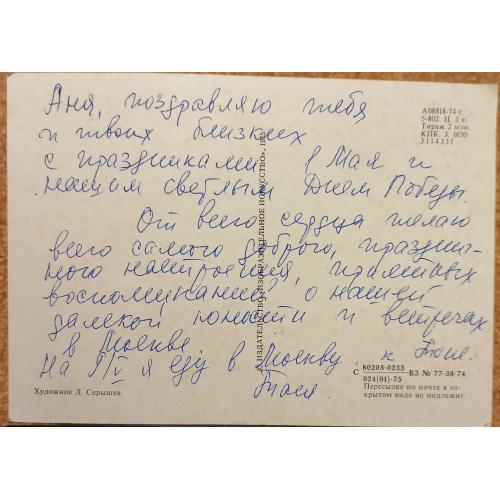 Аня, поздравляю тебя
и твоих близких
с праздниками 1 Мая и
нашим светлым Днем Победы.
От всего сердца желаю
всего самого доброго, праздни-
чного настроения, приятных
воспоминаний о нашей
далекой юности и встречах
в Москве.
На 9/V я еду в Москву к Тосе.
Тася
А08818-74 г.
5-802. Ц. 3 к.
Тираж 2 млн.
КПК. З. 1870
3114311
ИЗДАТЕЛЬСТВО «ИЗОБРАЗИТЕЛЬНОЕ ИСКУССТВО»,
Художник Л. Серышев.
С 80205-0233 БЗ № 77-38-74
024(01)-75
Пересылке по почте в от-
крытом виде не подлежит